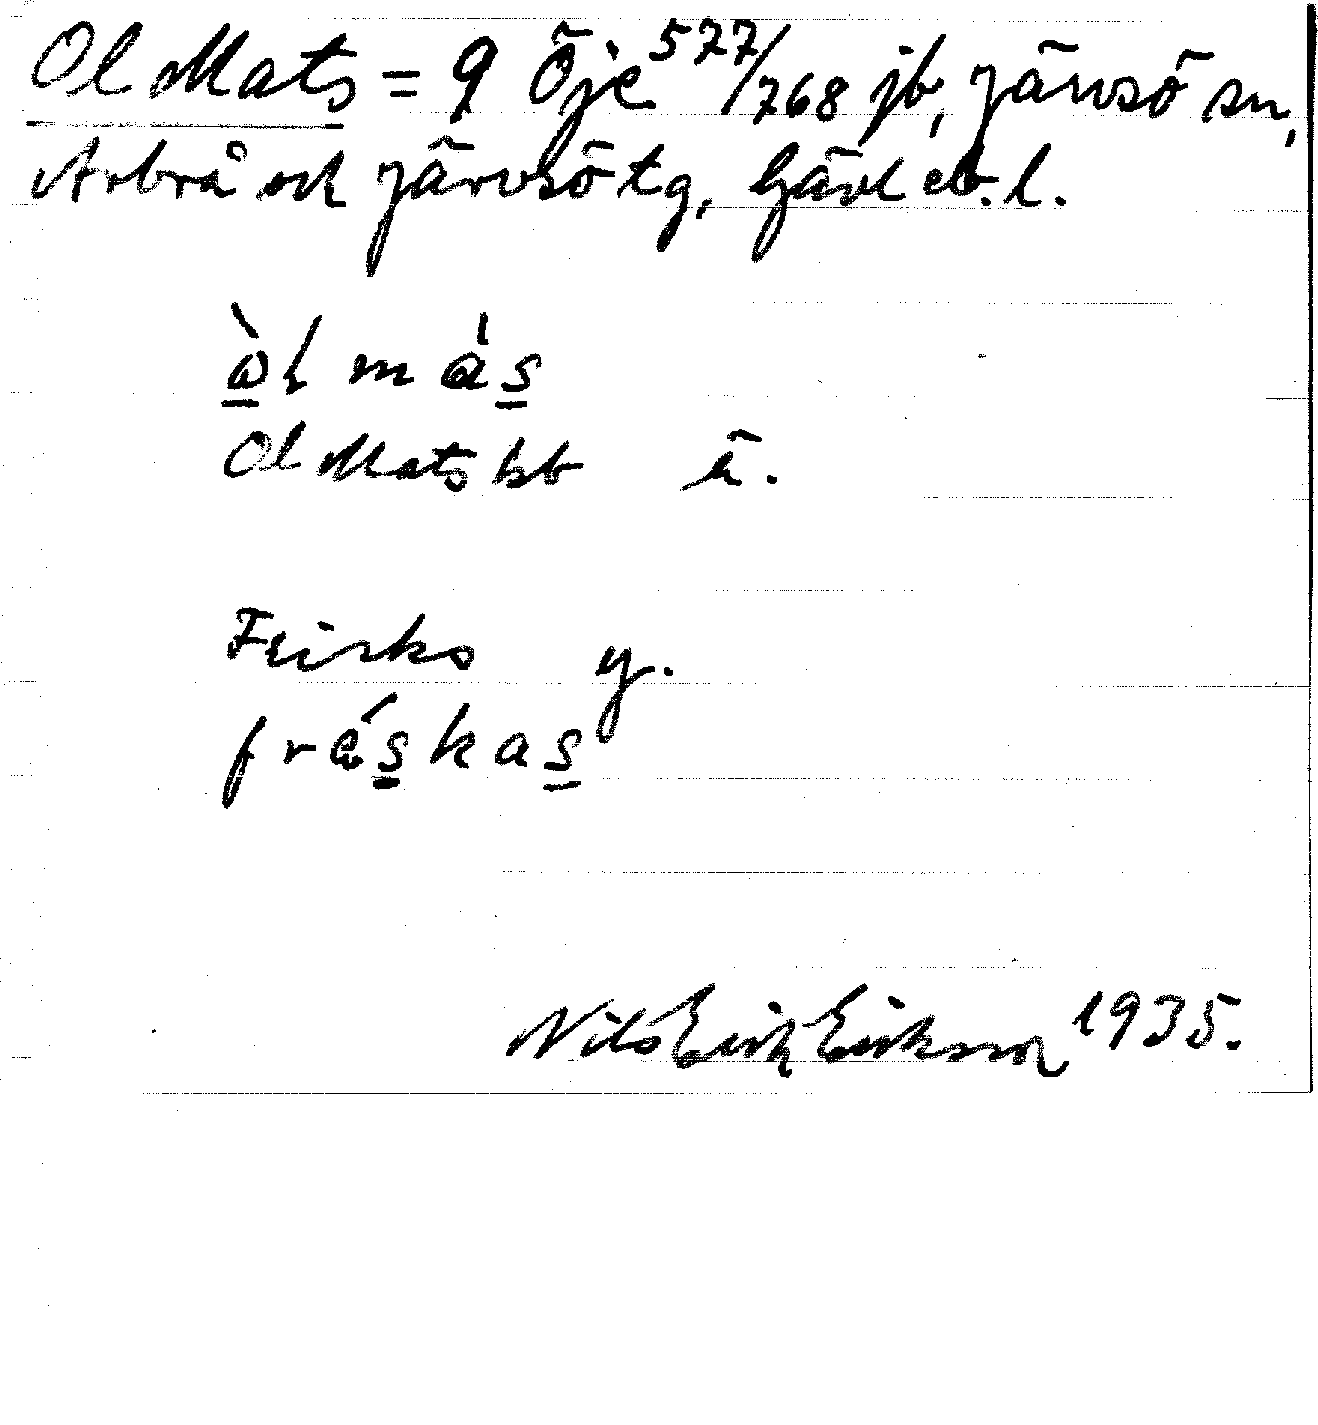 Ol Mats = 9 Öje 577/768 jb, Järvsö sn,
Arbrå och Järvsö tg, Gävleb. l.
òl más
Ol Mats kb ä.
y.
fráskas
Nils Erik Eriksson 1935.